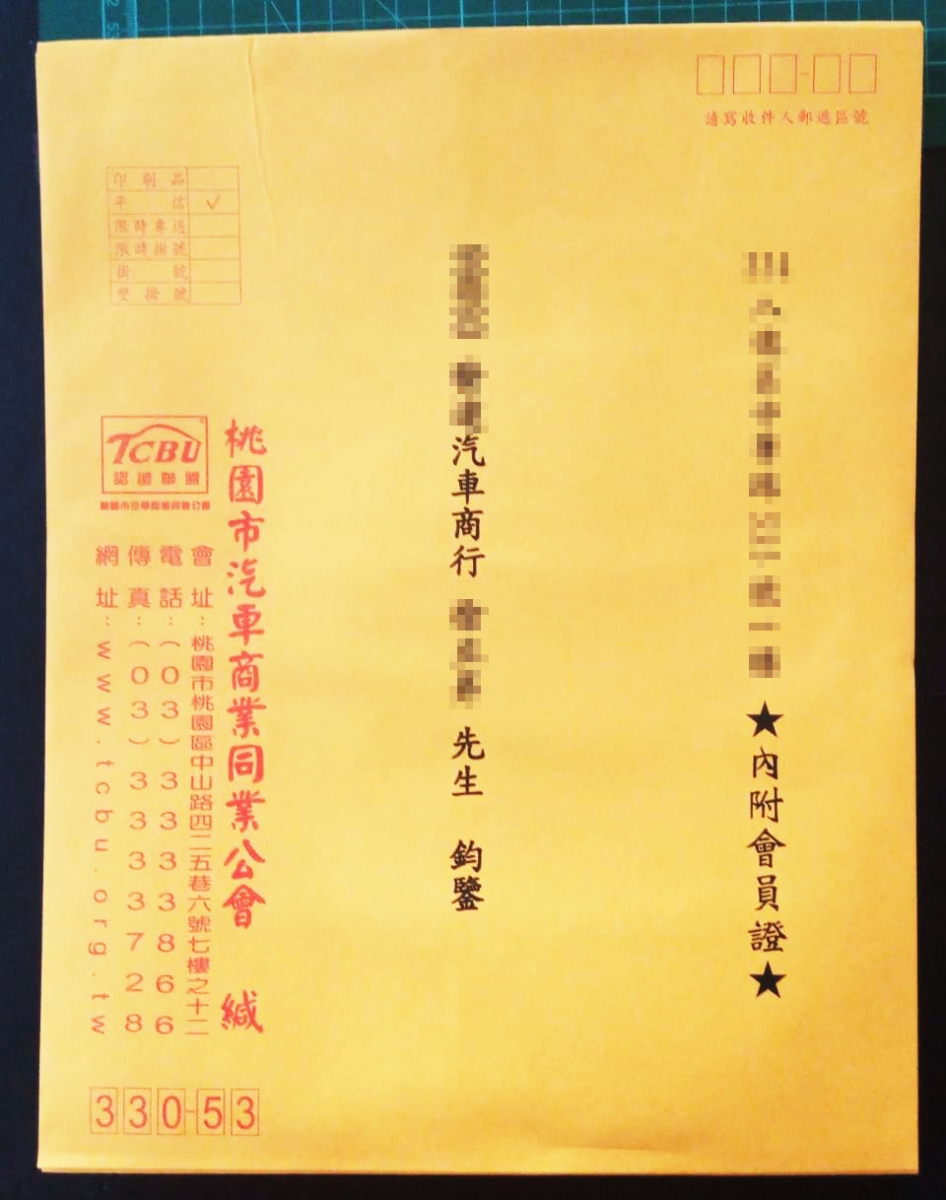 請寫收件人郵遞區號
★內附會員證★
汽車商行 先生 鈞鑒
印刷品
平信 ✓
限時專送
限時掛號
掛號
雙掛號
TCBU
認證聯盟
桃園市汽車商業同業公會
桃園市汽車商業同業公會 緘
會址:桃園市桃園區中山路四二五巷六號七樓之十二
電話:(03)3338666
傳真:(03)3337728
網址:www.tcbu.org.tw
330-53